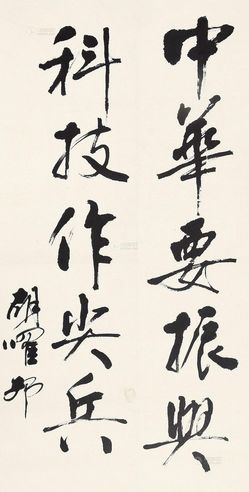 中華要振興
科技作尖兵
胡耀邦